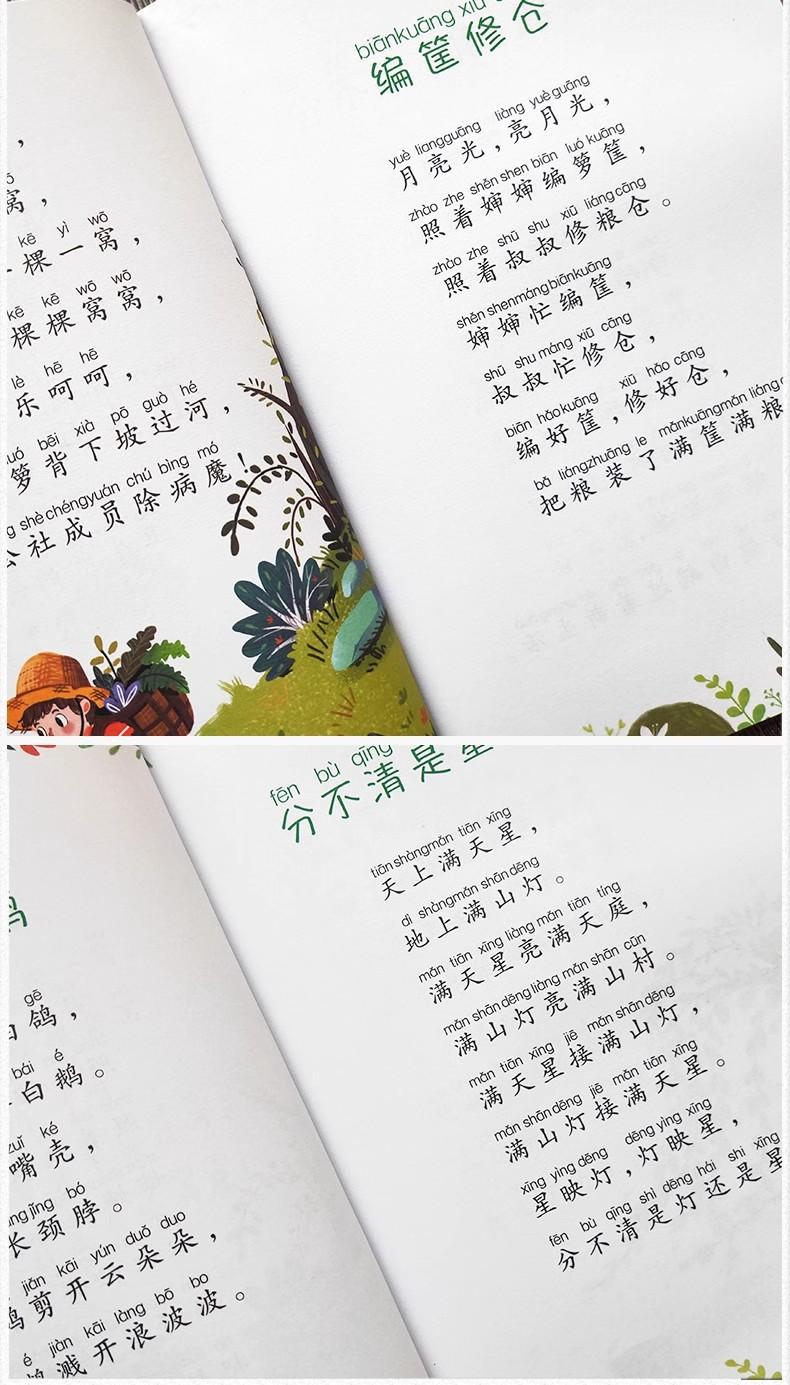 窝，
kē yì wō
棵一窝，
kē kē wō wō
棵棵窝窝，
lè hē hē
乐呵呵，
bēi xià pō guò hé
箩背下坡过河，
shè chéngyuán chú bìng mó
公社成员除病魔！
biānkuāng xiū
编筐修仓
yuè liangguāng liàng yuè guāng
月亮光，亮月光，
zhào zhe shěn shen biān luó kuāng
照着婶婶编箩筐，
zhào zhe shū shu xiū liáng cāng
照着叔叔修粮仓。
shěn shen máng biān kuāng
婶婶忙编筐，
shū shu máng xiū cāng
叔叔忙修仓，
biān hǎo kuāng xiū hǎo cāng
编好筐，修好仓，
bǎ liángzhuāng le mǎnkuāngmǎn liáng
把粮装了满筐满粮
fēn bù qīng
分不清是星
tiān shàngmǎn tiān xīng
天上满天星，
dì shàngmǎn shān dēng
地上满山灯。
mǎn tiān xīng liàng mǎn tiān tíng
满天星亮满天庭，
mǎn shān dēng liàng mǎn shān cūn
满山灯亮满山村。
mǎn tiān xīng jiē mǎn shān dēng
满天星接满山灯，
mǎn shān dēng jiē mǎn tiān xīng
满山灯接满天星。
xīng yìng dēng dēng yìng xīng
星映灯，灯映星，
fēn bù qīng shì dēng hái shi xīng
分不清是灯还是星
gē
白鸽，
bái é
白鹅。
zuǐ ké
嘴壳，
jǐng bó
长颈脖。
jiǎn kāi yún duǒ duo
鸽剪开云朵朵，
é jiàn kāi làng bō bo
鹅溅开浪波波。